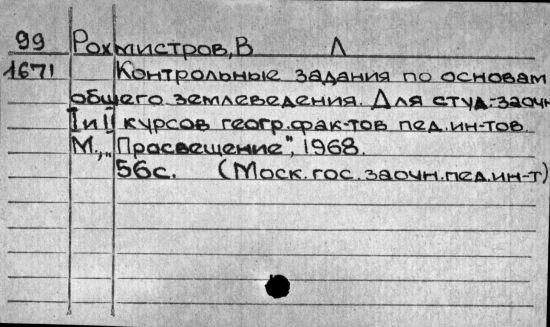 99 Рохмистров, В Л
1671 Контрольные задания по основам
общего землеведения. Для студ-заочн
I и II курсов геогр.фак-тов пед.ин-тов.
М., „Просвещение", 1968.
56с. (Моск.гос.заочн.пед.ин-т)